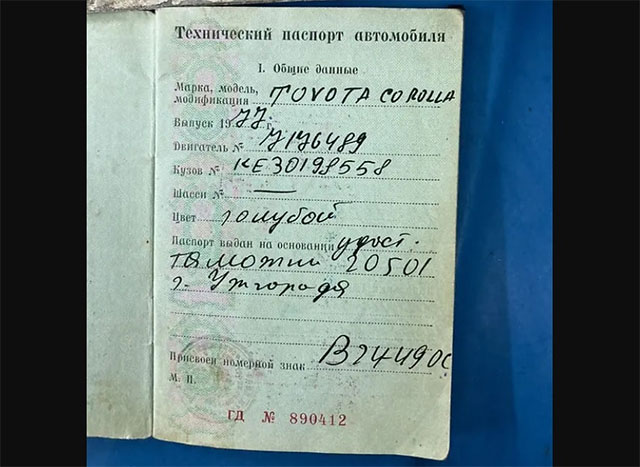 Технический паспорт автомобиля
I. Общие данные
Марка, модель,
модификация TOYOTA COROLLA
Выпуск 1977 г.
Двигатель № 7176489
Кузов № KE30198558
Шасси № —
Цвет голубой
Паспорт выдан на основании удост.
таможни 20501
г. Ужгорода
Присвоен номерной знак
М. П.
ГД № 890412